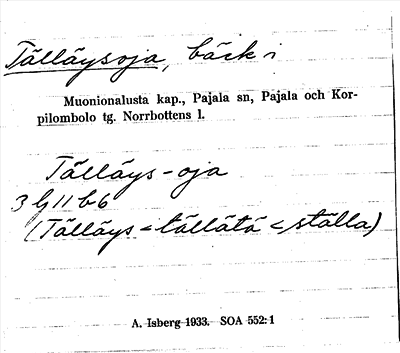 Tälläysoja, bäck i
Muonionalusta kap., Pajala sn, Pajala och Kor-
pilombolo tg. Norrbottens l.
Tälläys-oja
3 b 11 b 6
(Tälläys < tällätä < ställa)
A. Isberg 1933. SOA 552:1